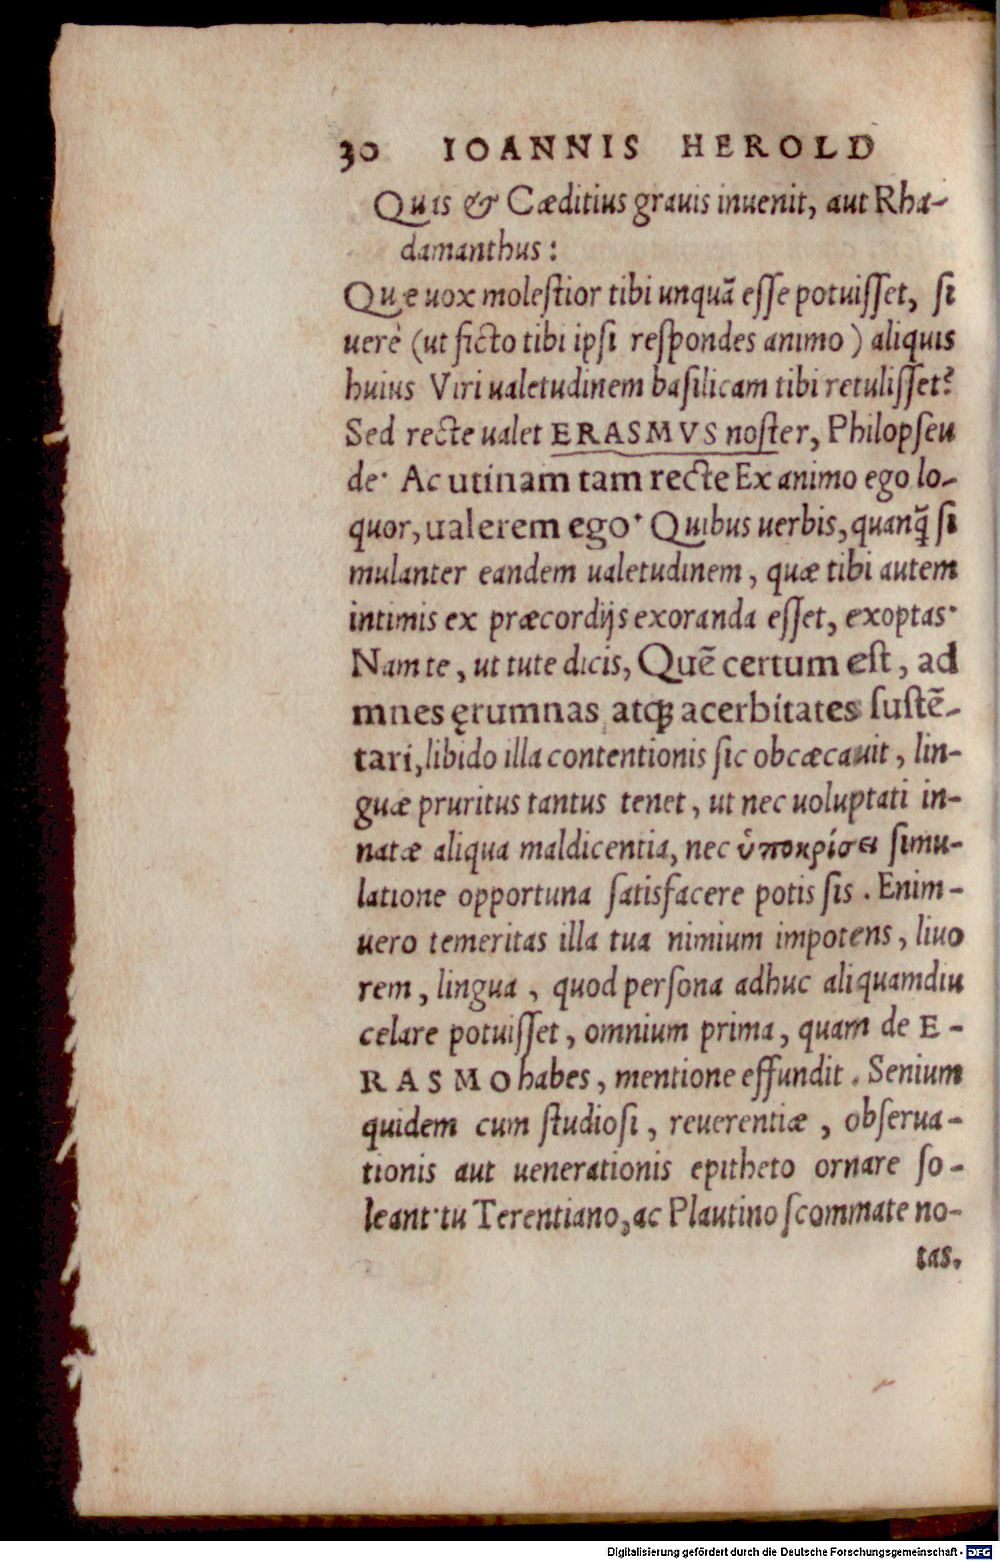 30 IOANNIS HEROLD
Quis & Cæditius grauis inuenit, aut Rha-
damanthus:
Quæ uox molestior tibi unquā esse potuisset, si
uerè (ut ficto tibi ipsi respondes animo) aliquis
huius Viri ualetudinem basilicam tibi retulisset?
Sed recte ualet ERASMVS noster, Philopseu
de· Ac utinam tam recte Ex animo ego lo-
quor, ualerem ego· Quibus uerbis, quanq̃ si
mulanter eandem ualetudinem, quæ tibi autem
intimis ex præcordijs exoranda esset, exoptas·
Nam te, ut tute dicis, Quē certum est, ad
mnes ęrumnas atq; acerbitates sustē-
tari, libido illa contentionis sic obcæcauit, lin-
guæ pruritus tantus tenet, ut nec uoluptati in-
natæ aliqua maldicentia, nec ὑποκρίσει simu-
latione opportuna satisfacere potis sis. Enim-
uero temeritas illa tua nimium impotens, liuo
rem, lingua, quod persona adhuc aliquamdiu
celare potuisset, omnium prima, quam de E-
RASMO habes, mentione effundit. Senium
quidem cum studiosi, reuerentiæ, obserua-
tionis aut uenerationis epitheto ornare so-
leant· tu Terentiano, ac Plautino scommate no-
tas.
Digitalisierung gefördert durch die Deutsche Forschungsgemeinschaft - DFG